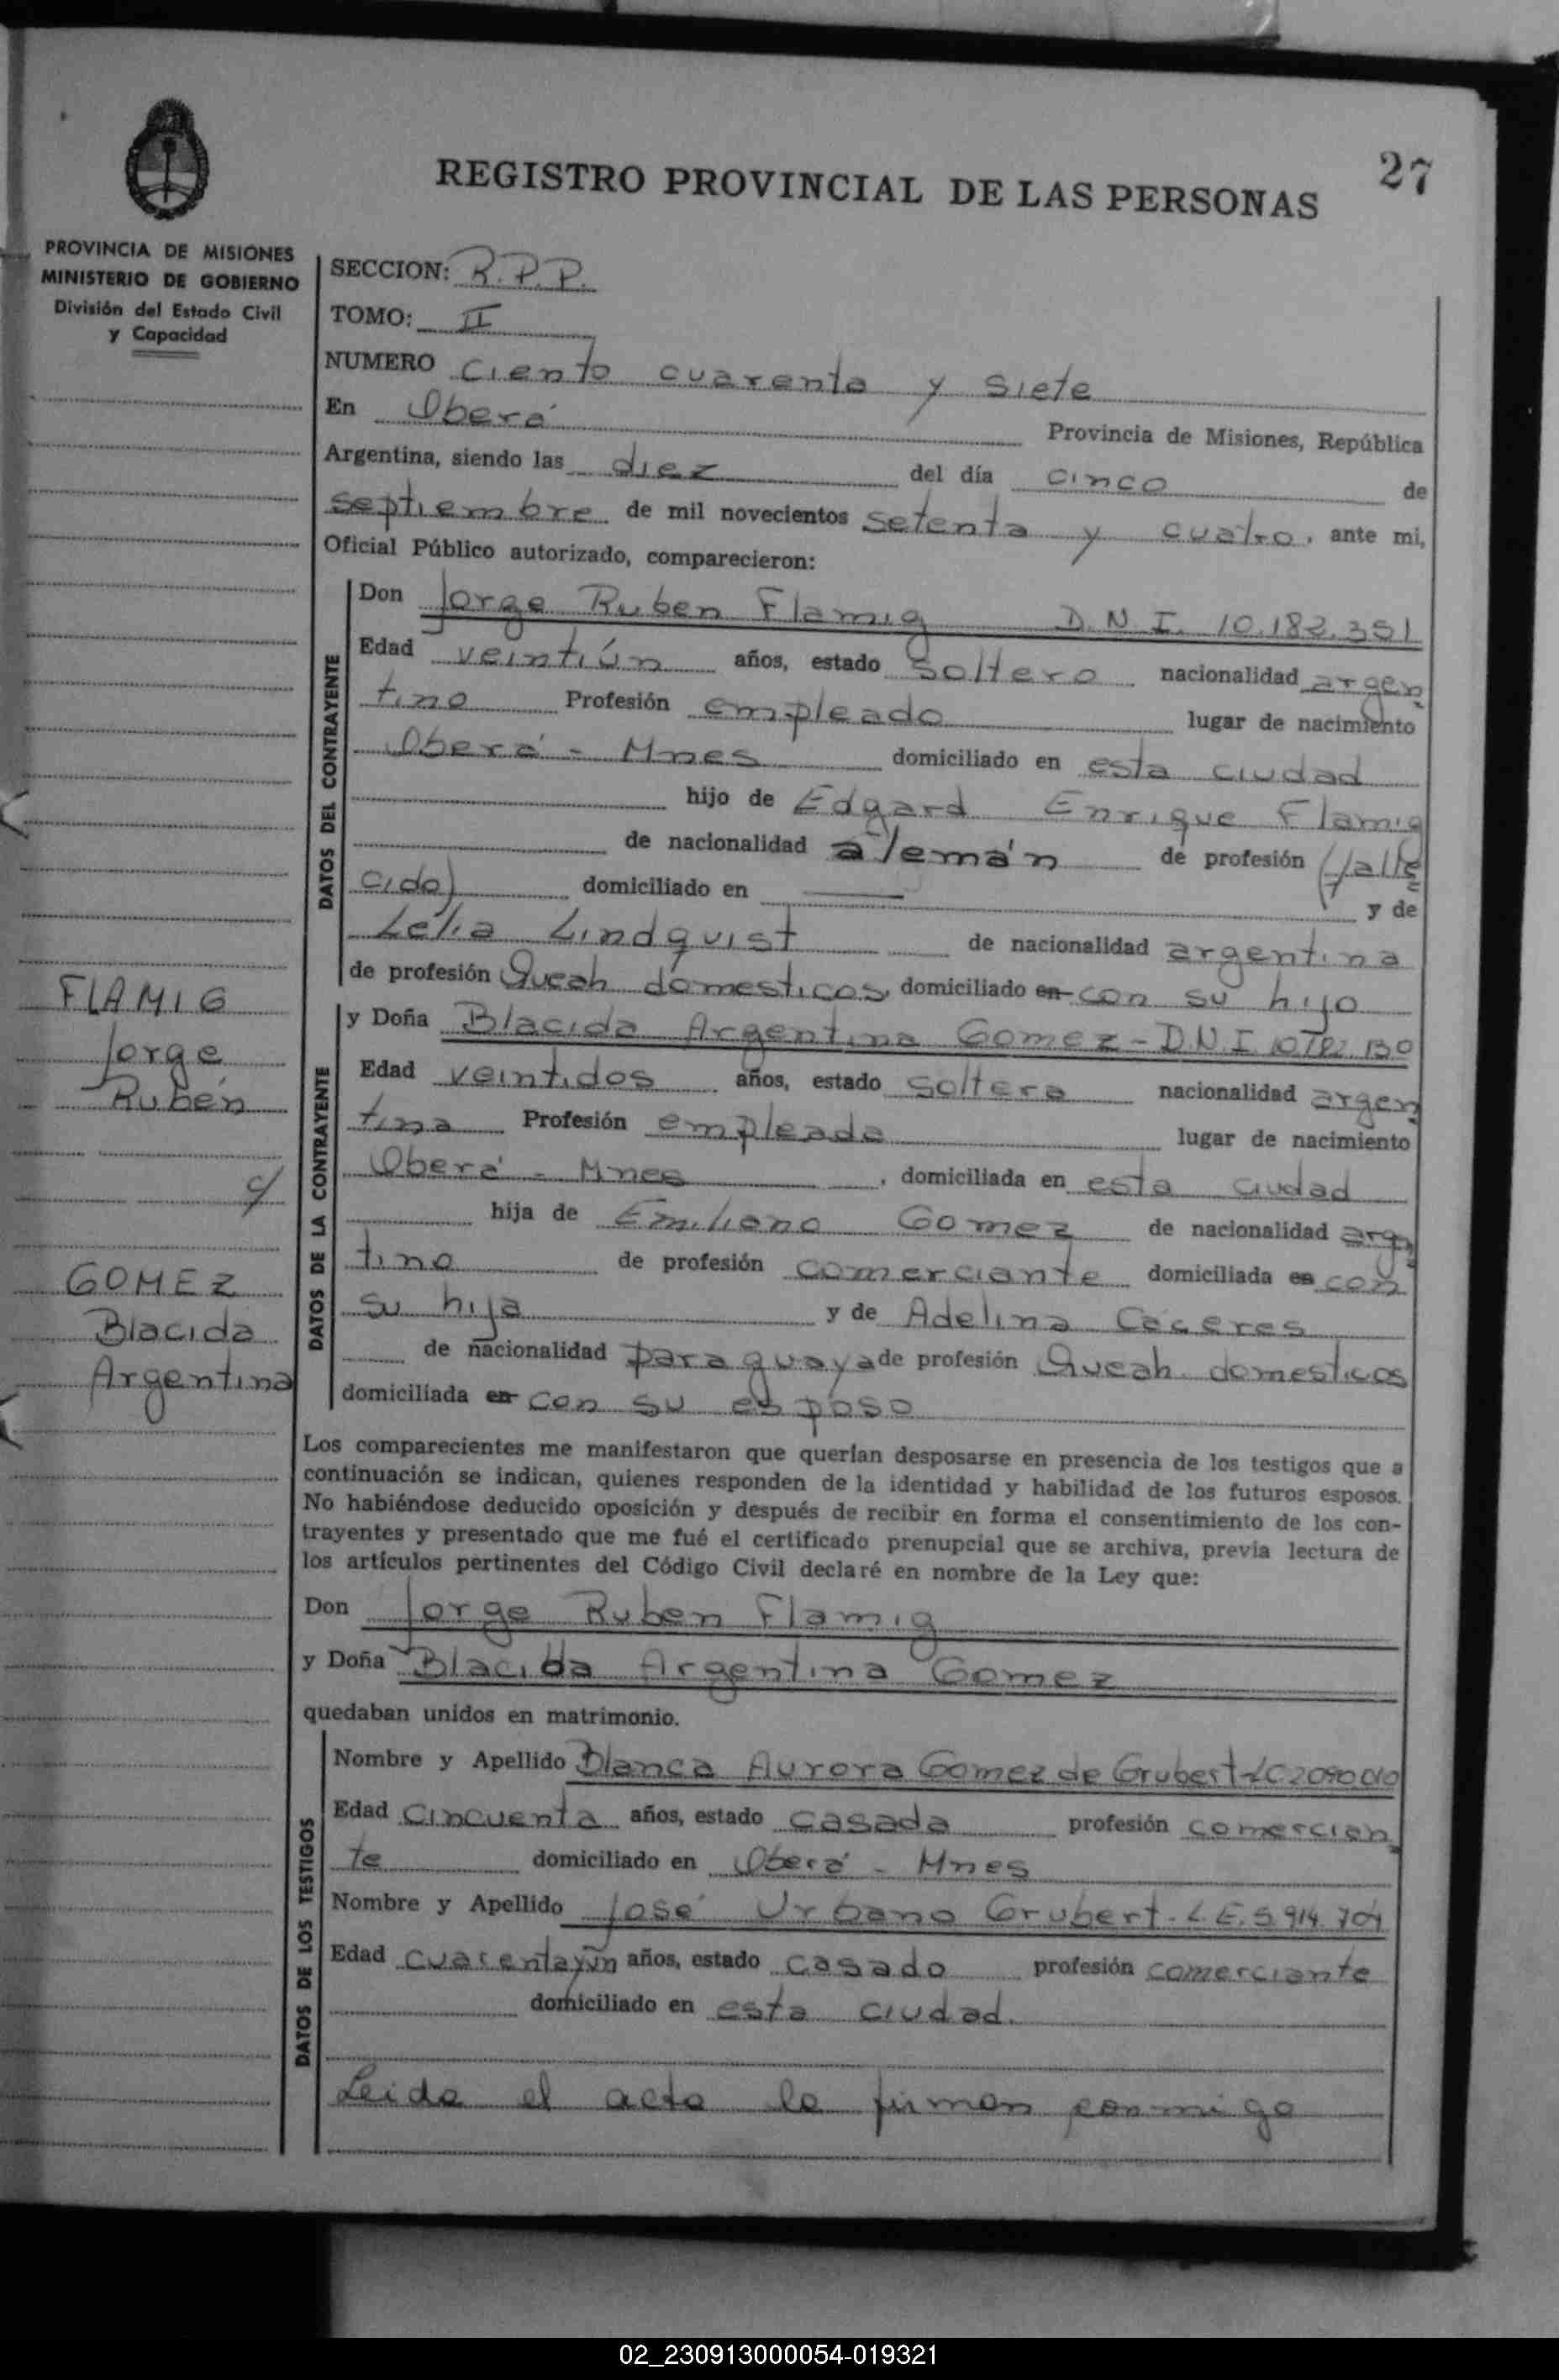 27
REGISTRO PROVINCIAL DE LAS PERSONAS
PROVINCIA DE MISIONES
MINISTERIO DE GOBIERNO
División del Estado Civil
y Capacidad
SECCION: R.P.P.
TOMO: II
NUMERO Ciento cuarenta y siete
En Oberá Provincia de Misiones, República
Argentina, siendo las diez del día cinco de
septiembre de mil novecientos setenta y cuatro, ante mi,
Oficial Público autorizado, comparecieron:
DATOS DEL CONTRAYENTE
Don Jorge Ruben Flamig D.N.I. 10.182.351
Edad veintiún años, estado soltero nacionalidad argen
tino Profesión empleado lugar de nacimiento
Oberá - Mnes domiciliado en esta ciudad
hijo de Edgard Enrique Flamig
de nacionalidad alemán de profesión (falle
cido) domiciliado en — y de
Lelia Lindquist de nacionalidad argentina
de profesión Queah domesticos, domiciliado en con su hijo
FLAMIG
Jorge
Rubén
c/
GOMEZ
Blacida
Argentina
DATOS DE LA CONTRAYENTE
y Doña Blacida Argentina Gomez - D.N.I.
Edad veintidos años, estado soltera nacionalidad argen
tina Profesión empleada lugar de nacimiento
Oberá - Mnes, domiciliada en esta ciudad
hija de Emiliano Gomez de nacionalidad argen
tino de profesión comerciante domiciliada en con
su hija y de Adelina Caceres
de nacionalidad paraguaya de profesión Queah. domesticos
domiciliada en con su esposo
Los comparecientes me manifestaron que querían desposarse en presencia de los testigos que a
continuación se indican, quienes responden de la identidad y habilidad de los futuros esposos.
No habiéndose deducido oposición y después de recibir en forma el consentimiento de los con-
trayentes y presentado que me fué el certificado prenupcial que se archiva, previa lectura de
los artículos pertinentes del Código Civil declaré en nombre de la Ley que:
Don Jorge Ruben Flamig
y Doña Blacida Argentina Gomez
quedaban unidos en matrimonio.
DATOS DE LOS TESTIGOS
Nombre y Apellido Blanca Aurora Gomez de Grubert LC 2090010
Edad Cincuenta años, estado casada profesión comercian
te domiciliado en Oberá - Mnes
Nombre y Apellido José Urbano Grubert - L.E. 5.914.704
Edad cuarenta y un años, estado casado profesión comerciante
domiciliado en esta ciudad.
Leida el acta la firman conmigo
02_230913000054-019321